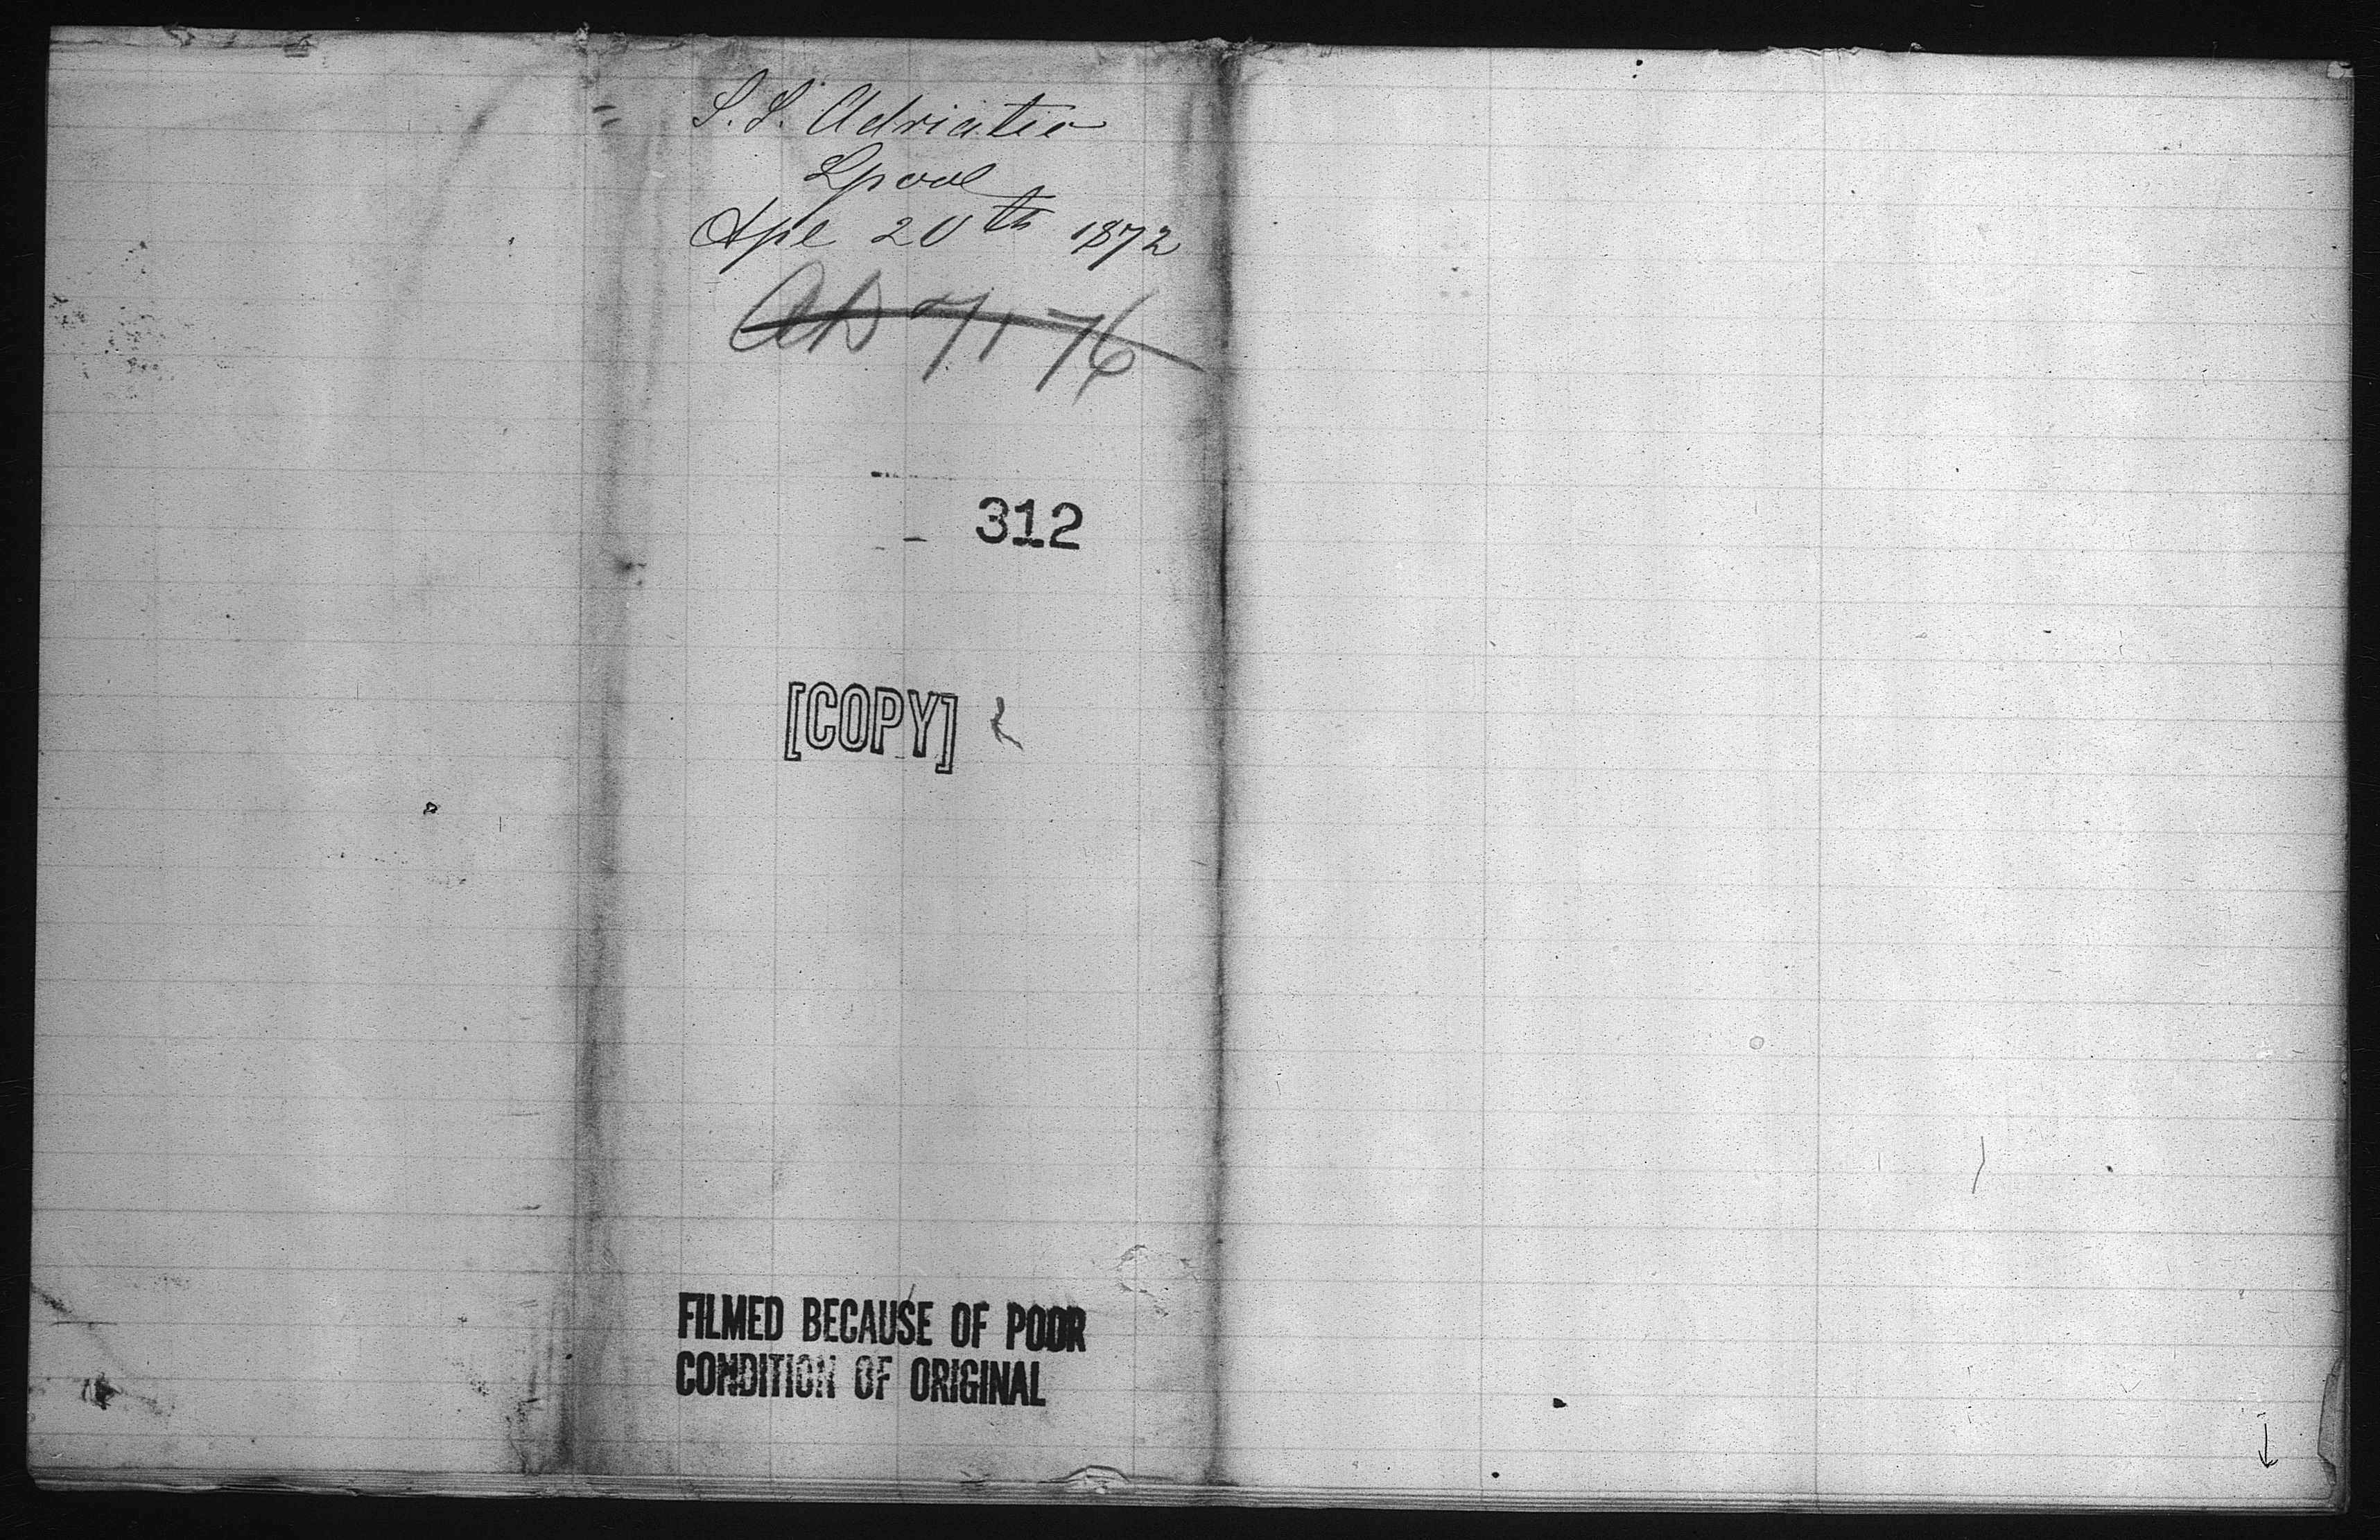 S. S. Adriatic
Lpool
Apl 20th 1872
312
[COPY]
FILMED BECAUSE OF POOR
CONDITION OF ORIGINAL